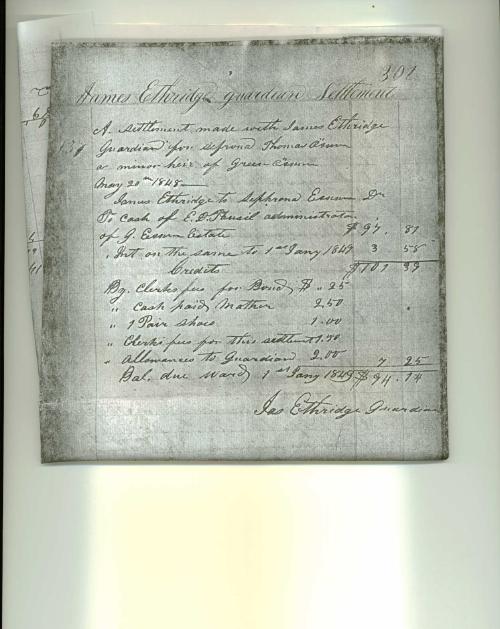 301
James Ethridge guardian Settlement
A settlement made with James Ethridge
Guardian for Thomas
a minor heir of Green
May 20th 1848
James Ethridge to Sephrona Essum Dr
To Cash of E.D. administrator
of G. Essum Estate $97. 81
" Int on the same to 1st Jany 1849 3 58
Credits $101 39
By Clerks fees for Bond $ .25
" Cash paid Mother 2.50
" 1 Pair shoes 1.00
" Clerks fees for this settlmt 1.50
" Allowances to Guardian 2.00 7 25
Bal. due Ward 1st Jany 1849 $94.14
Jas Ethridge Guardian